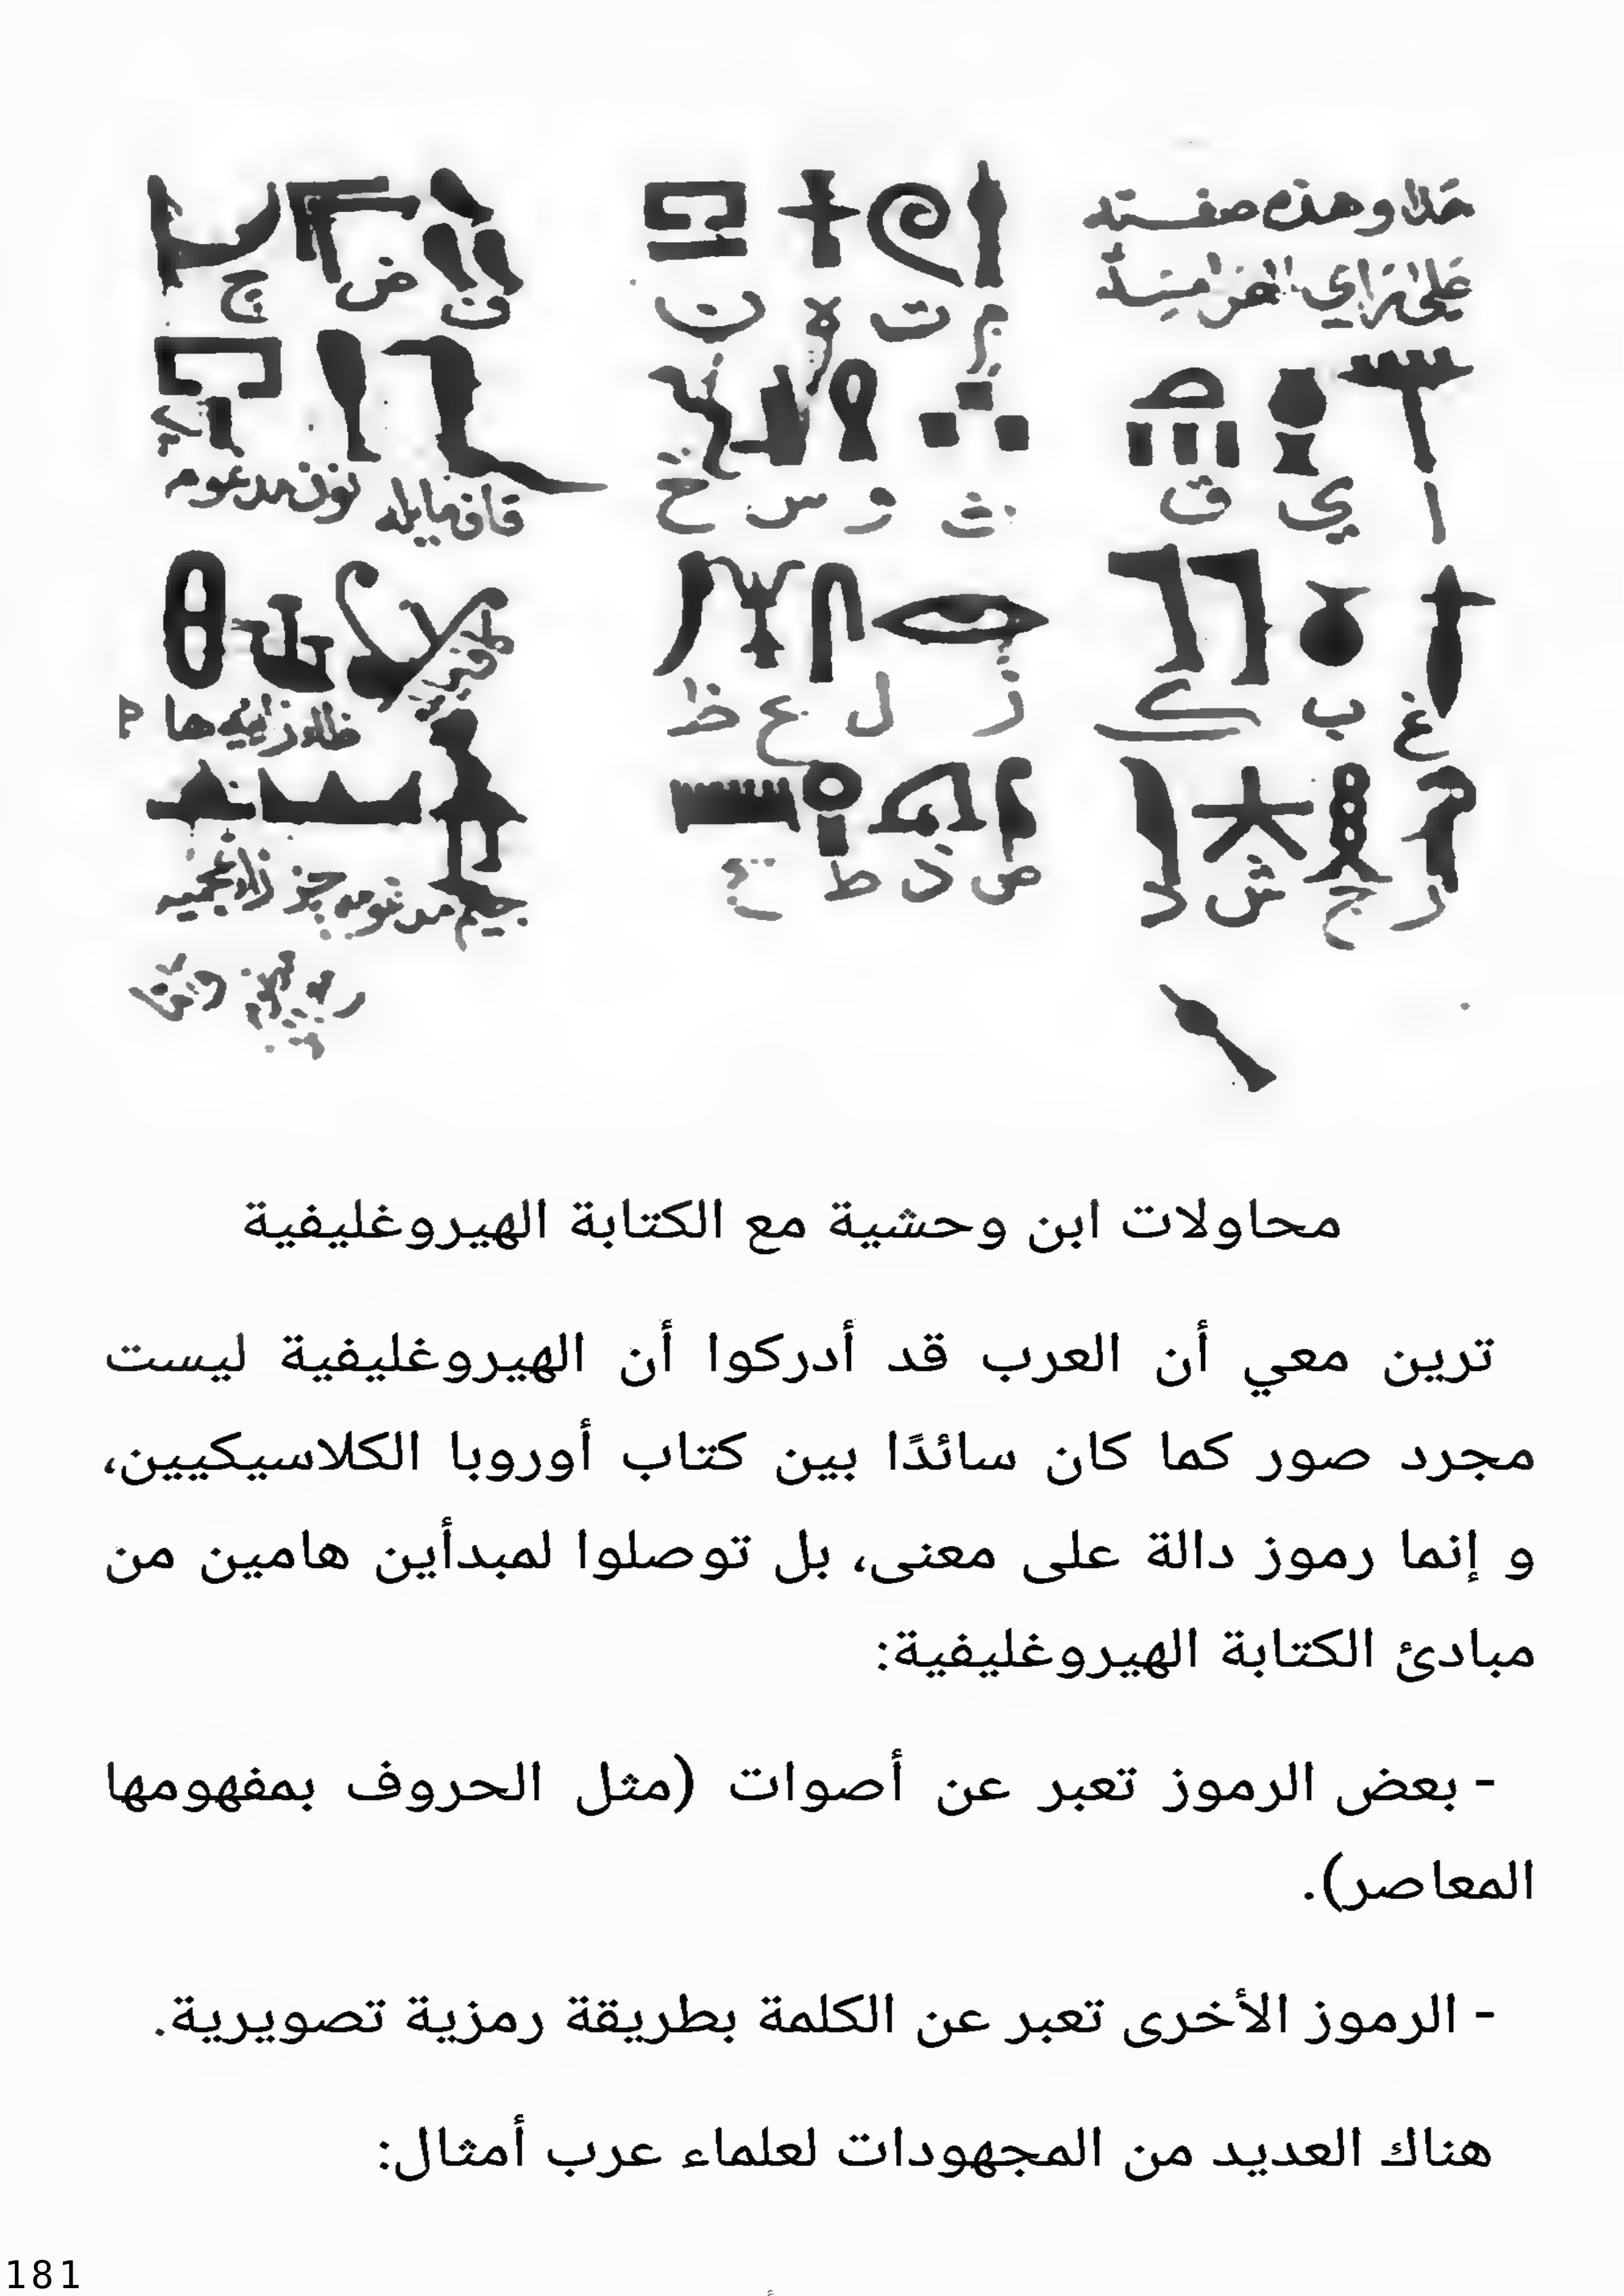 م ت ه ن
ف ض چ
ا ي ق
ث و س خ
غ ب ك
ز ل ع ظ
ر ج ش د
ص ذ ط
محاولات ابن وحشية مع الكتابة الهيروغليفية
ترين معي أن العرب قد أدركوا أن الهيروغليفية ليست
مجرد صور كما كان سائدًا بين كتاب أوروبا الكلاسيكيين،
و إنما رموز دالة على معنى، بل توصلوا لمبدأين هامين من
مبادئ الكتابة الهيروغليفية:
- بعض الرموز تعبر عن أصوات (مثل الحروف بمفهومها
المعاصر).
- الرموز الأخرى تعبر عن الكلمة بطريقة رمزية تصويرية.
هناك العديد من المجهودات لعلماء عرب أمثال:
181